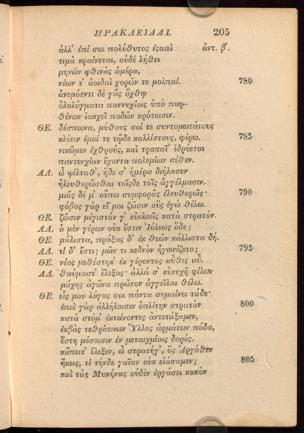 ΗΡΑΚΛΕΙΔΑΙ. 205
ἀλλ' ἐπί σοι πολύθυτος ἐπεὶ ἀντ. β'.
τιμὰ κραίνεται, οὐδὲ λήθει
μηνῶν φθινὰς ἁμέρα,
νέων τ' ἀοιδαὶ χορῶν τε μολπαί. 780
ἀνεμόεντι δὲ γᾶς ὄχθῳ
ὀλολύγματα παννυχίοις ὑπὸ παρ-
θένων ἰακχεῖ ποδῶν κρότοισιν.
ΘΕ. δέσποινα, μύθους σοί τε συντομωτάτους
κλύειν ἐμοί τε τῷδε καλλίστους, φέρω. 785
νικῶμεν ἐχθροὺς, καὶ τροπαῖ' ἱδρύεται
παντευχίαν ἔχοντα πολεμίων σέθεν.
ΑΛ. ὦ φίλταθ', ἥδε σ' ἡμέρα διήλασεν
ἠλευθερῶσθαι τοῖσδε τοῖς ἀγγέλμασιν.
μιᾶς δέ μ' οὔπω συμφορᾶς ἐλευθεροῖς· 790
φόβος γὰρ εἴ μοι ζῶσιν οὓς ἐγὼ θέλω.
ΘΕ. ζῶσιν μέγιστόν γ' εὐκλεεῖς κατὰ στρατόν.
ΑΛ. ὁ μὲν γέρων οὐκ ἔστιν Ἰόλεως ὅδε;
ΘΕ. μάλιστα, πράξας δ' ἐκ θεῶν κάλλιστα δή.
ΑΛ. τί δ' ἔστι; μῶν τι κεδνὸν ἠγωνίζετο; 795
ΘΕ. νέος μεθέστηκ' ἐκ γέροντος αὖθις αὖ.
ΑΛ. θαυμάστ' ἔλεξας· ἀλλά σ' εὐτυχῆ φίλων
μάχης ἀγῶνα πρῶτον ἀγγεῖλαι θέλω.
ΘΕ. εἷς μου λόγος σοι πάντα σημανεῖ τάδε·
ἐπεὶ γὰρ ἀλλήλοισιν ὁπλίτην στρατὸν 800
κατὰ στόμ' ἐκτείνοντες ἀντετάξαμεν,
ἐκβὰς τεθρίππων Ὕλλος ἁρμάτων πόδα,
ἔστη μέσοισιν ἐν μεταιχμίοις δορός.
κἄπειτ' ἔλεξεν, ὦ στρατήγ', ὃς Ἀργόθεν
ἥκεις, τί τήνδε γαῖαν οὐκ εἰάσαμεν; 805
καὶ τὰς Μυκήνας οὐδὲν ἐργάσει κακὸν